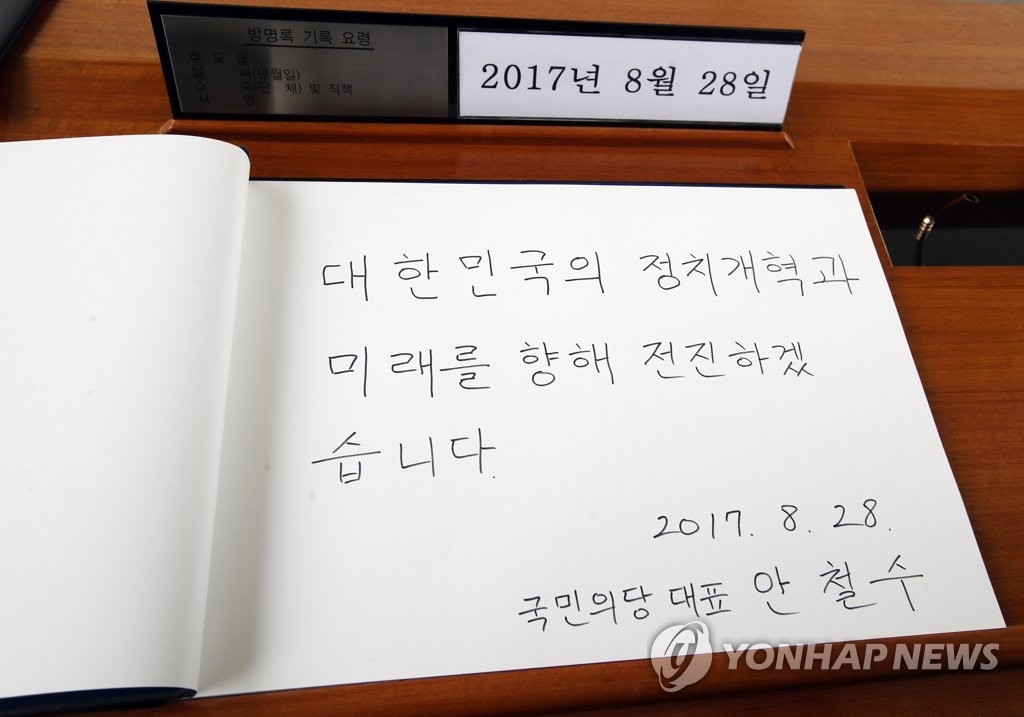 방명록 기록 요령
추 모 글
날 짜(년월일)
소 속(단 체) 및 직책
서 명
2017년 8월 28일
대한민국의 정치개혁과
미래를 향해 전진하겠
습니다.
2017. 8. 28.
국민의당 대표 안철수
YONHAP NEWS